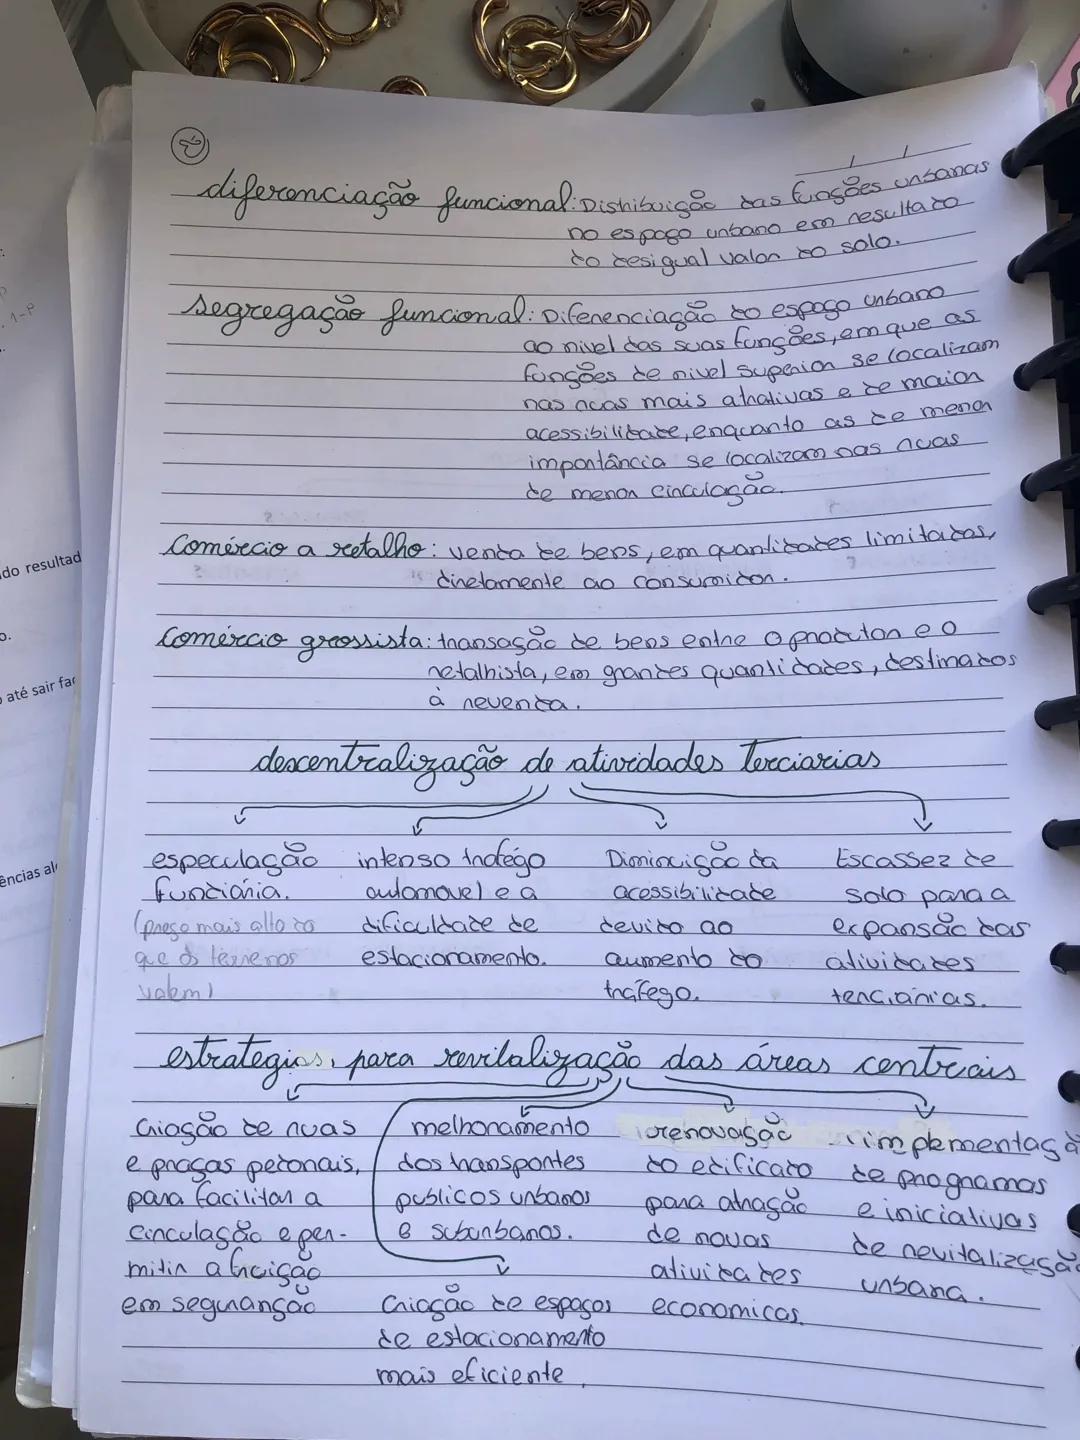 2
diferenciação funcional: Distribuição das funções urbanas
no espaço urbano em resultado
do desigual valor do solo.
segregação funcional: Diferenciação do espaço urbano
ao nivel das suas funções, em que as
funções de nivel superior se localizam
nas ruas mais atrativas e de maior
acessibilidade, enquanto as de menor
importância se localizam nas ruas
de menor circulação.
Comércio a retalho: venda de bens, em quantidades limitadas,
diretamente ao consumidor.
Comércio grossista: transação de bens entre o produtor e o
retalhista, em grandes quantidades, destinados
à revenda.
descentralização de atividades terciarias
especulação
fundiária.
(preço mais alto do
que os terrenos
valem)
intenso trafego
automovel e a
dificuldade de
estacionamento.
Diminuição da
acessibilidade
devido ao
aumento do
tráfego.
Escassez de
solo para a
expansão das
atividades
terciárias.
estrategias, para revitalização das áreas centrais
Criação de ruas
e praças petonais,
para facilitar a
circulação e per-
mitir a fruição
em segurança
melhoramento
dos transportes
publicos urbanos
e suburbanos.
Criação de espaços
de estacionamento
mais eficiente.
renovação
do edificado
para atração
de novas
atividades
economicas.
implementaçã
de programas
e iniciativas
de revitalizaçã
urbana.
do resultad
o.
até sair far
ências al